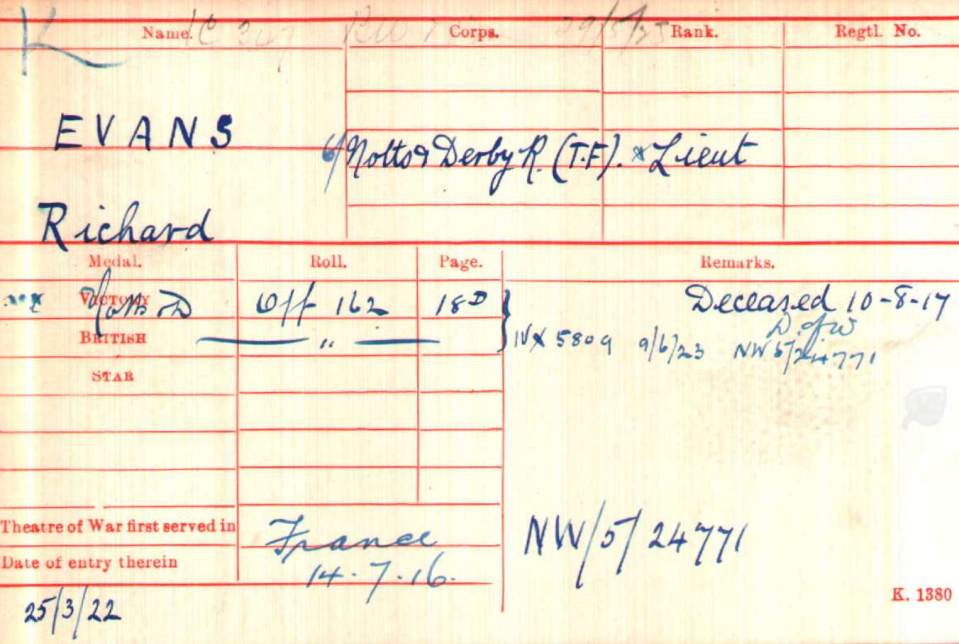 K
Name. Corps. Rank. Regtl. No.
EVANS
6/Notts & Derby R. (T.F). * Lieut
Richard
Medal. Roll. Page. Remarks.
VICTORY Notts & D Off 162 18D Deceased 10-8-17
D of W
BRITISH " IVX 5809 9/6/23 NW 5/24771
STAR
Theatre of War first served in France
NW/5/24771
Date of entry therein 14.7.16.
K. 1380
25/3/22